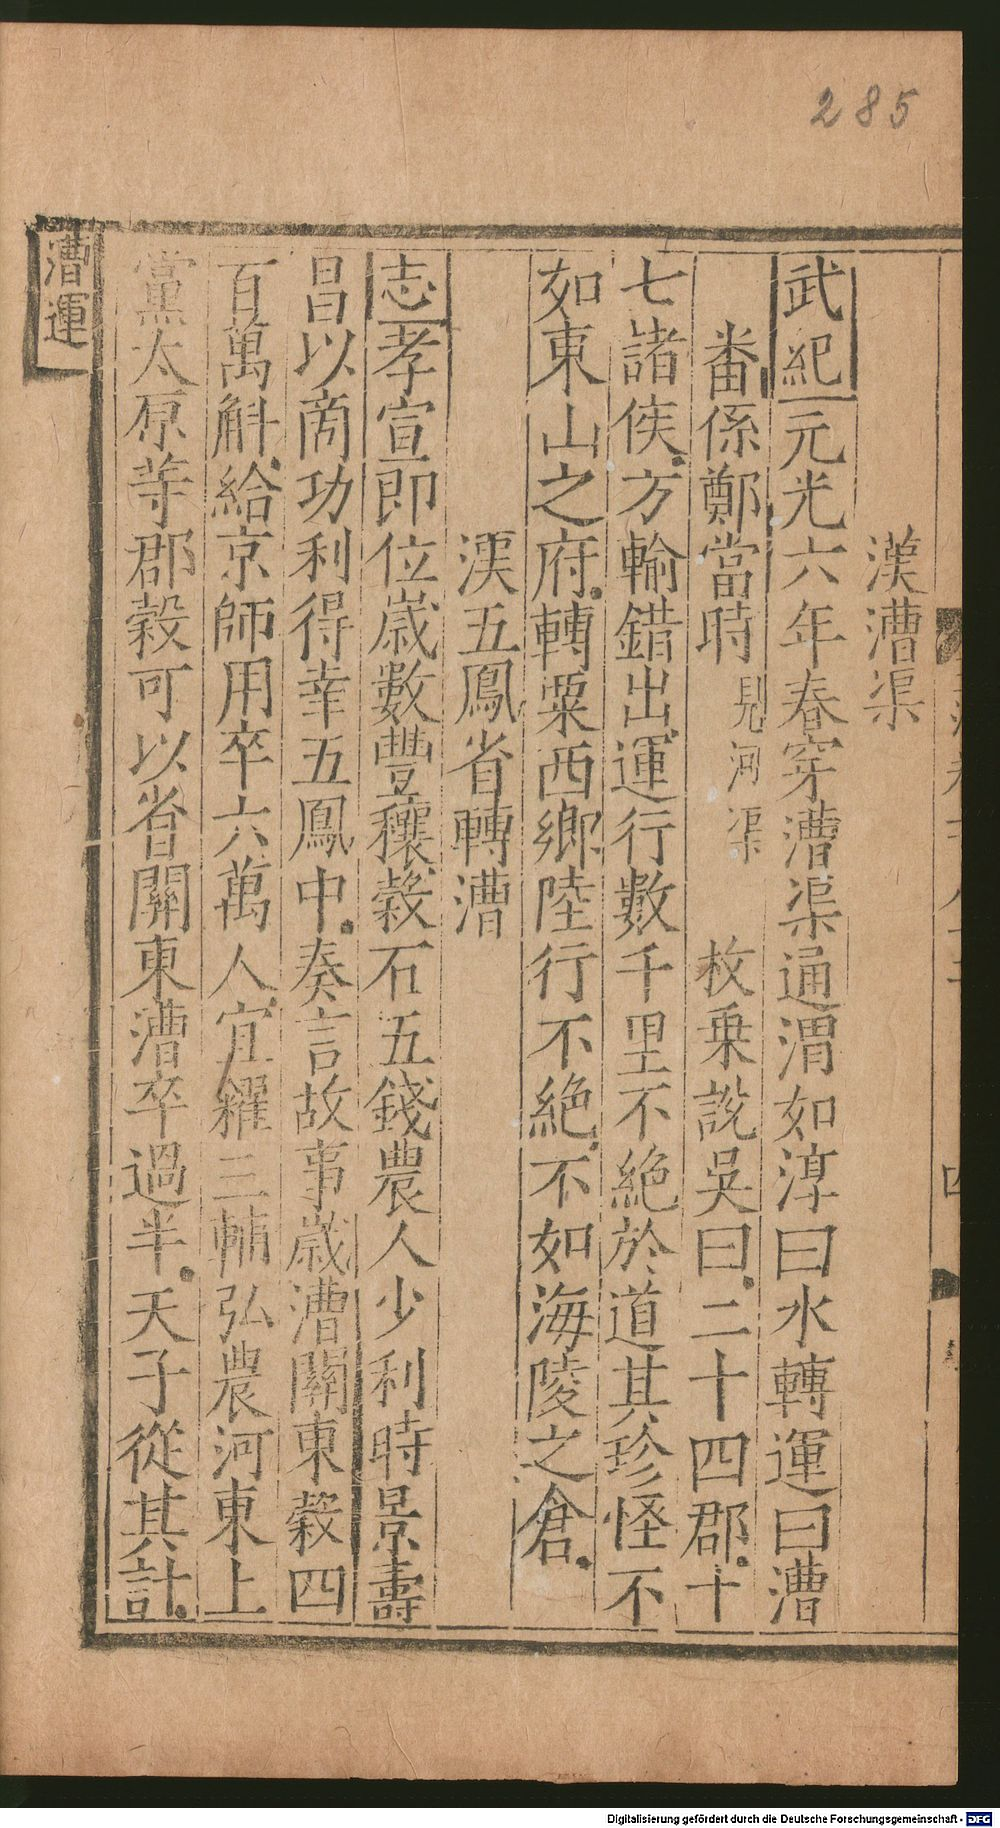 285
漢漕渠
武紀元光六年春穿漕渠通渭如淳曰水轉運曰漕
番係鄭當時見河渠枚乗說吳曰二十四郡十
七諸侯方輸錯出運行數千里不絶於道其珍怪不
如東山之府轉粟西鄉陸行不絶不如海陵之倉
漢五鳳省轉漕
志孝宣即位歲數豐穰穀石五錢農人少利時景壽
昌以商功利得幸五鳳中奏言故事歲漕關東穀四
百萬斛給京師用卒六萬人宜糴三輔弘農河東上
黨太原等郡穀可以省關東漕卒過半天子從其計
漕運
Digitalisierung gefördert durch die Deutsche Forschungsgemeinschaft - DFG